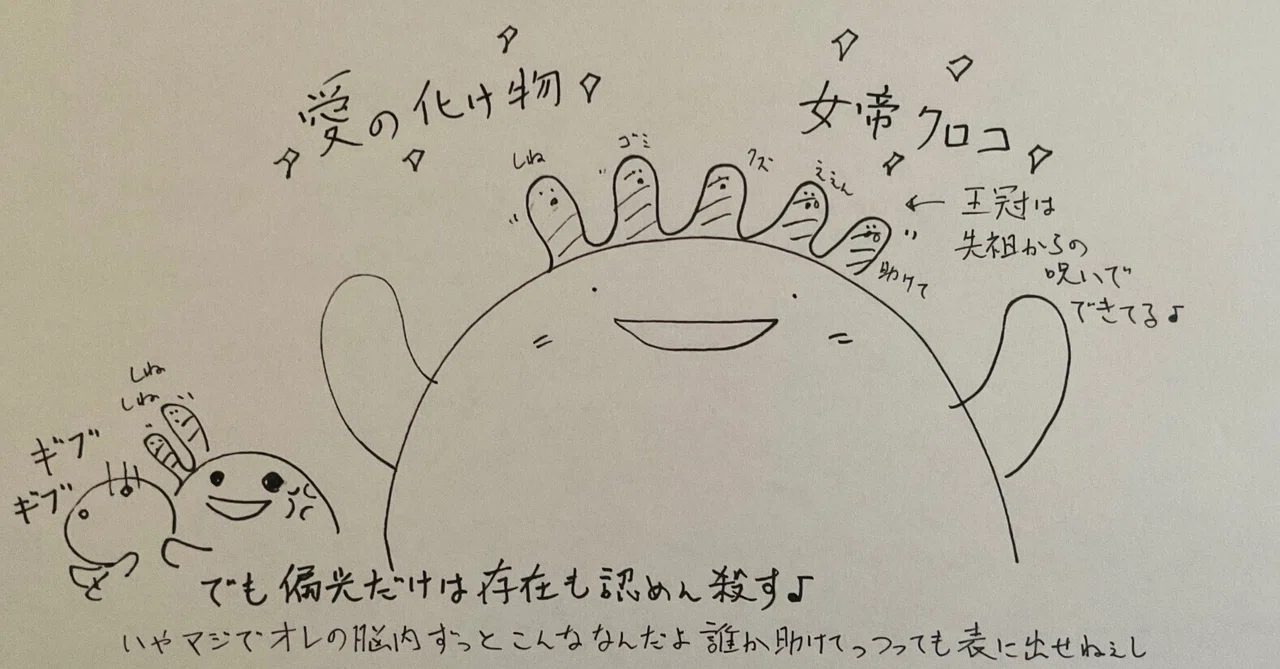 愛の化け物
女帝クロコ
しね
ゴミ
クズ
ええん
助けて
← 王冠は
先祖からの
呪いで
できてる♪
しね
しね
ギブ
ギブ
でも偏光だけは存在も認めん殺す♪
いやマジでオレの脳内ずっとこんななんだよ誰か助けてっつっても表に出せねぇし